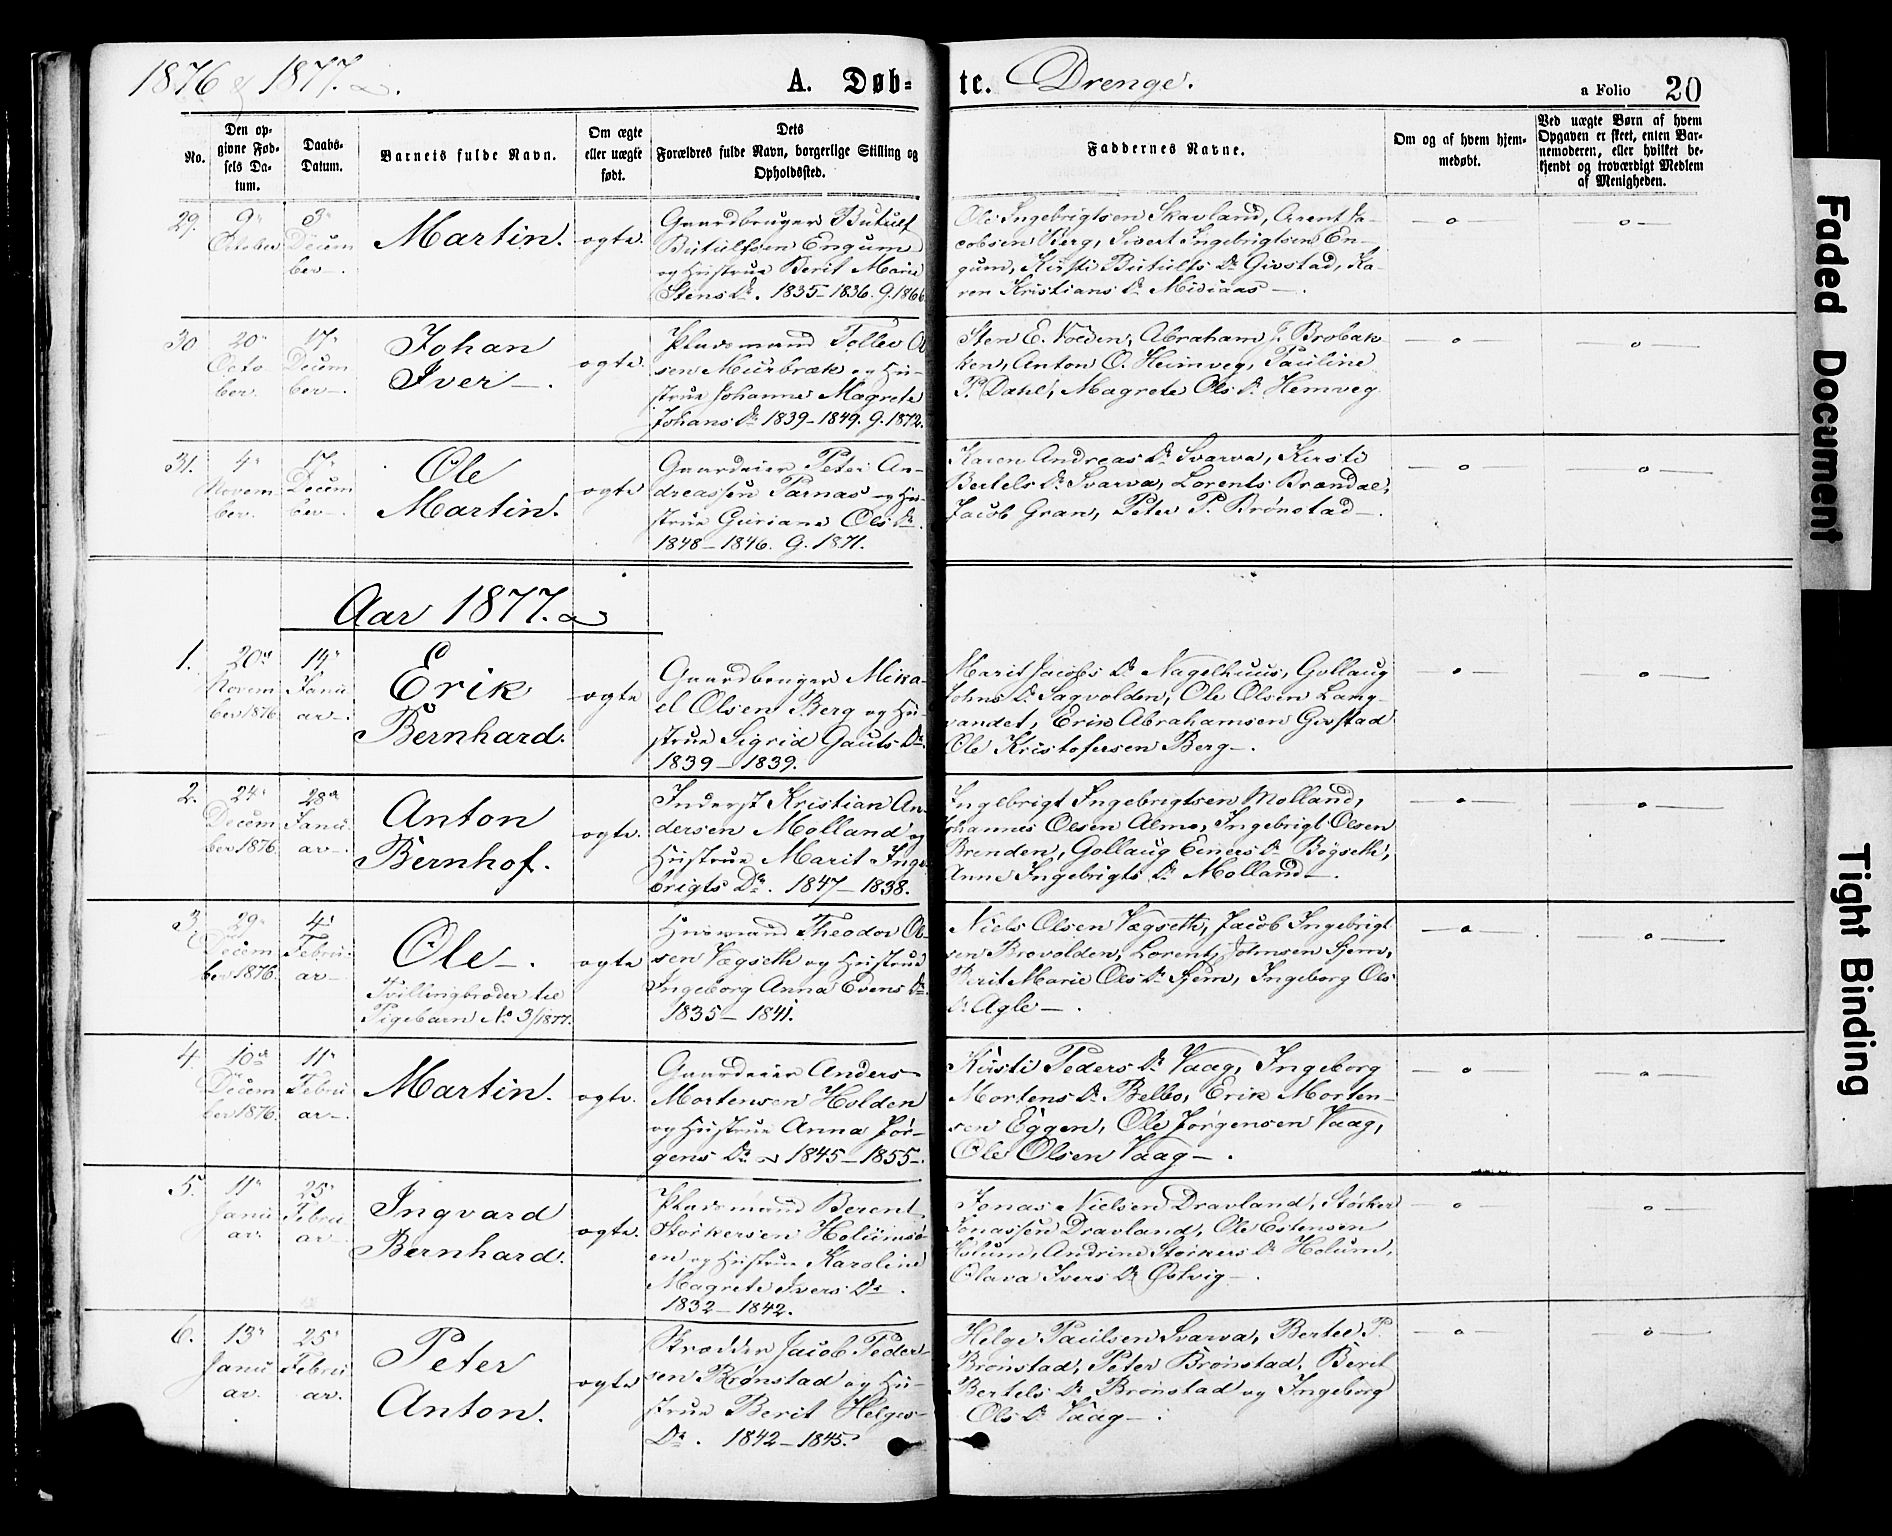 1876 & 1877.
A. Døb-
te. Drenge.
a Folio 20
No.
Den op-
givne Fød-
sels Da-
tum.
Daabs-
Datum.
Barnets fulde Navn.
Om ægte
eller uægte
født.
Dets
Forældres fulde Navn, borgerlige Stilling og
Opholdssted.
Faddernes Navne.
Om og af hvem hjem-
medøbt.
Ved uægte Børn af hvem
Opgaven er skeet, enten Bar-
nemoderen, eller hvilket be-
kjendt og troværdigt Medlem
af Menigheden.
29.
9de
October
3die
Decem
ber
Martin.
ægte.
Gaardbruger Butulf
Butulfsen Engum
og Hustrue Berit Marie
Stens Dr. 1835-1836. G. 1866
Ole Ingebrigtsen Skavland, Arent Ja-
cobsen Berg, Sivert Ingebrigtsen En-
gum, Kirsti Butulfs Dr Givstad, Ka-
ren Kristians Dr Midiaas
30
20de
Octo
ber.
17de
Decem
ber
Johan
Iver
ægte
Pladsmand Tollev Ol
sen Murbræk og Hu-
strue Johanna Magrete
Johans Dr 1839-1849. G. 1872.
Sten E. Voeden, Abraham J. Brobak
ken, Anton O. Heimveg, Pauline
P. Dahl, Magrete Ols Dr Hemveg
31.
4de
Novem
ber.
17de
Decem
ber
Ole
Martin.
ægte
Gaardeier Peter An-
dreassen Parnas og Hu-
strue Guriana Ols Dr.
1848-1846. G. 1871.
Karen Andreas Dr Svarva, Kirsti
Bertels Dr Svarva, Lorents Brandal,
Jacob Gran, Peter P. Brønstad
Aar 1877.
1.
20de
Novem
ber 1876
14de
Janu
ar
Erik
Bernhard.
ægte
Gaardbruger Mika-
el Olsen Berg og Hu-
strue Sigrid Gauts Dr.
1839-1839.
Marit Jacobs Dr Nagelhuus, Gollaug
Johns Dr Sagvolden, Ole Olsen Lang-
vandet, Erik Abrahamsen Givstad
Ole Kristofersen Berg
2.
24de
Decem
ber 1876
28de
Janu
ar
Anton
Bernhof.
ægte.
Inderst Kristian An-
dersen Molland og
Hustrue Marit Inge
brigts Dr. 1847-1838.
Ingebrigt Ingebrigtsen Molland,
Johannes Olsen Almo, Ingebrigt Olsen
Brenden, Gollaug Einers Dr Bøgseth,
Anne Ingebrigts Dr Molland
3.
29de
Decem
ber 1876
4de
Febru
ar
Ole
Tvillingbroder til
Pigebarn No 3/1877.
ægte
Husmand Theodor Ol-
sen Vægseth og Hustrue
Ingeborg Anna Evens Dr.
1835-1841.
Niels Olsen Vægseth, Jacob Ingebrigt
sen Brovolden, Lorents Johnsen Sjem,
Berit Marie Ols Dr Sjem, Ingeborg Ols
Dr Agle
4.
10de
Decem
ber 1876.
11de
Febru
ar
Martin.
ægte.
Gaardeier Anders
Mortensen Holden
og Hustrue Anna Jør-
gens Dr 1845-1855.
Kirsti Peders Dr Vaag, Ingeborg
Mortens Dr Belbo, Erik Morten-
sen Eggen, Ole Jørgensen Vaag,
Ole Olsen Vaag
5.
11de
Janu
ar.
25de
Febru
ar
Ingvard
Bernhard.
ægte.
Pladsmand Berent
Størkersen Holumsø
en, og Hustrue Karoline
Magrete Ivers Dr.
1832-1842.
Jonas Nielsen Dravland, Størker
Jonassen Dravland, Ole Estensen
Holum, Andrine Størkers Dr Holum,
Olava Ivers Dr Østvig
6.
13de
Janu
ar.
25de
Febru
ar.
Peter
Anton.
ægte
Skrædder Jacob Peder-
sen Brønstad og Hu-
strue Berit Helges
Dr. 1842-1845.
Helge Paulsen Svarva, Bertel P.
Brønstad, Peter Brønstad, Berit
Bertels Dr Brønstad og Ingeborg
Ols Dr Vaag
Faded Document
Tight Binding